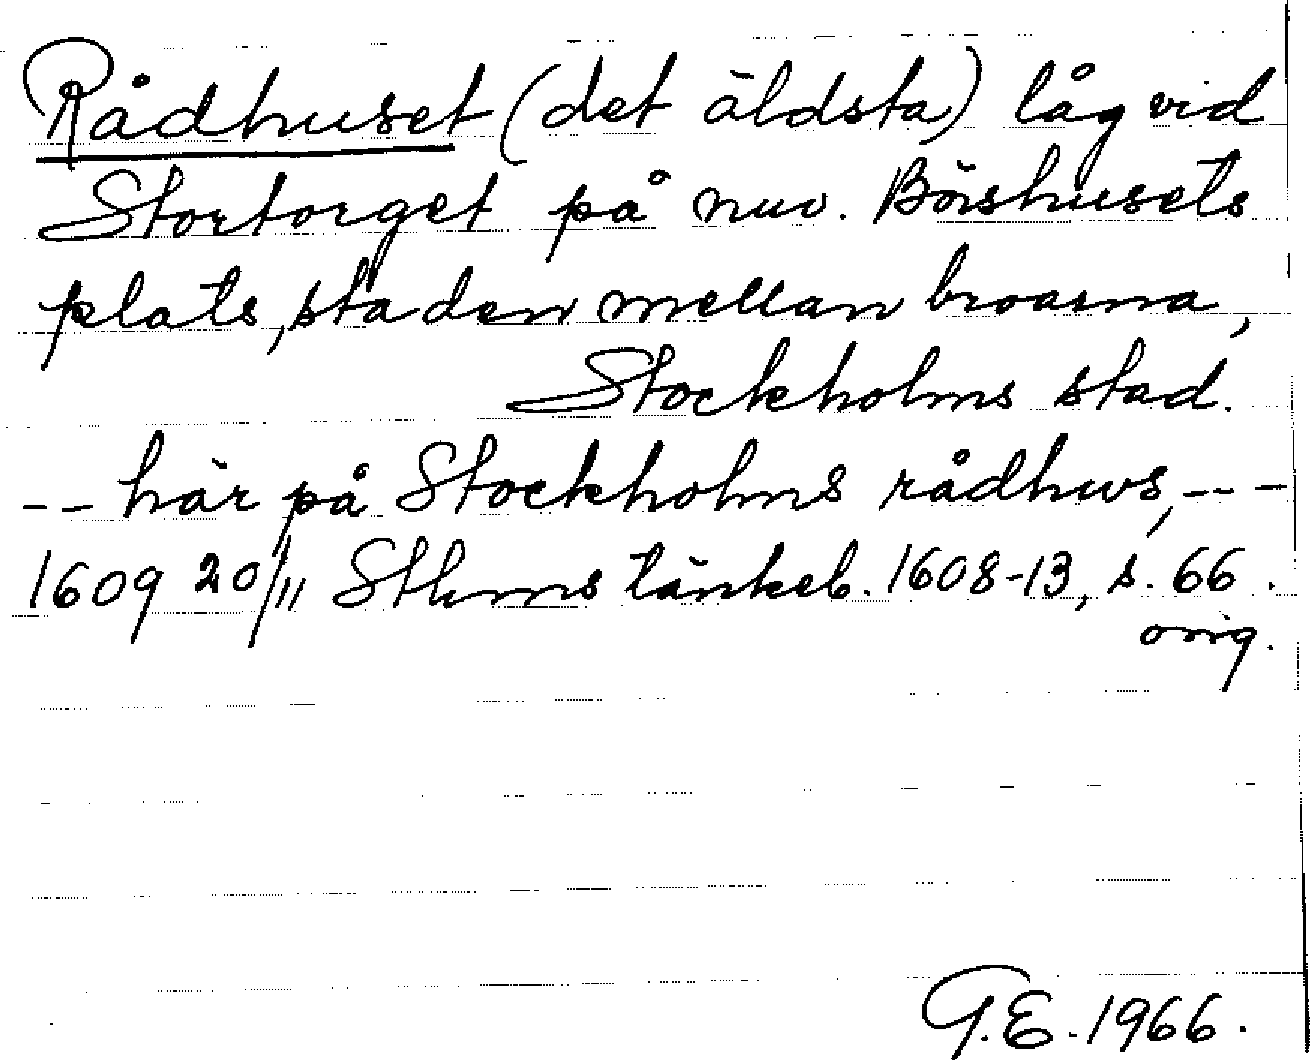 Rådhuset (det äldsta) låg vid
Stortorget på nuv. Börshusets
plats, staden mellan broarna,
Stockholms stad.
-- här på Stockholms rådhws, --
1609 20/11 Sthms tänkeb. 1608-13, s. 66.
orig.
G.E. 1966.